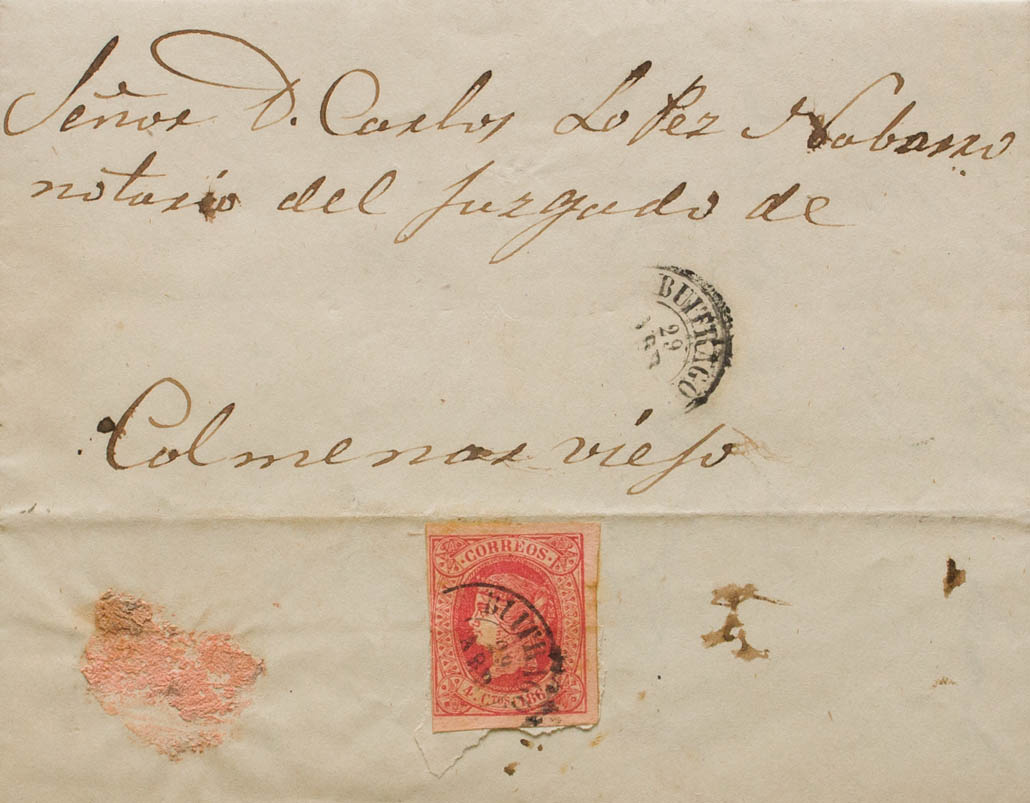 Señor D. Carlos Lopez Nabarro
notario del juzgado de
BUITRAGO
29
Colmenar viejo
CORREOS
BUITRAGO
29
ABR
4 Ctos 186